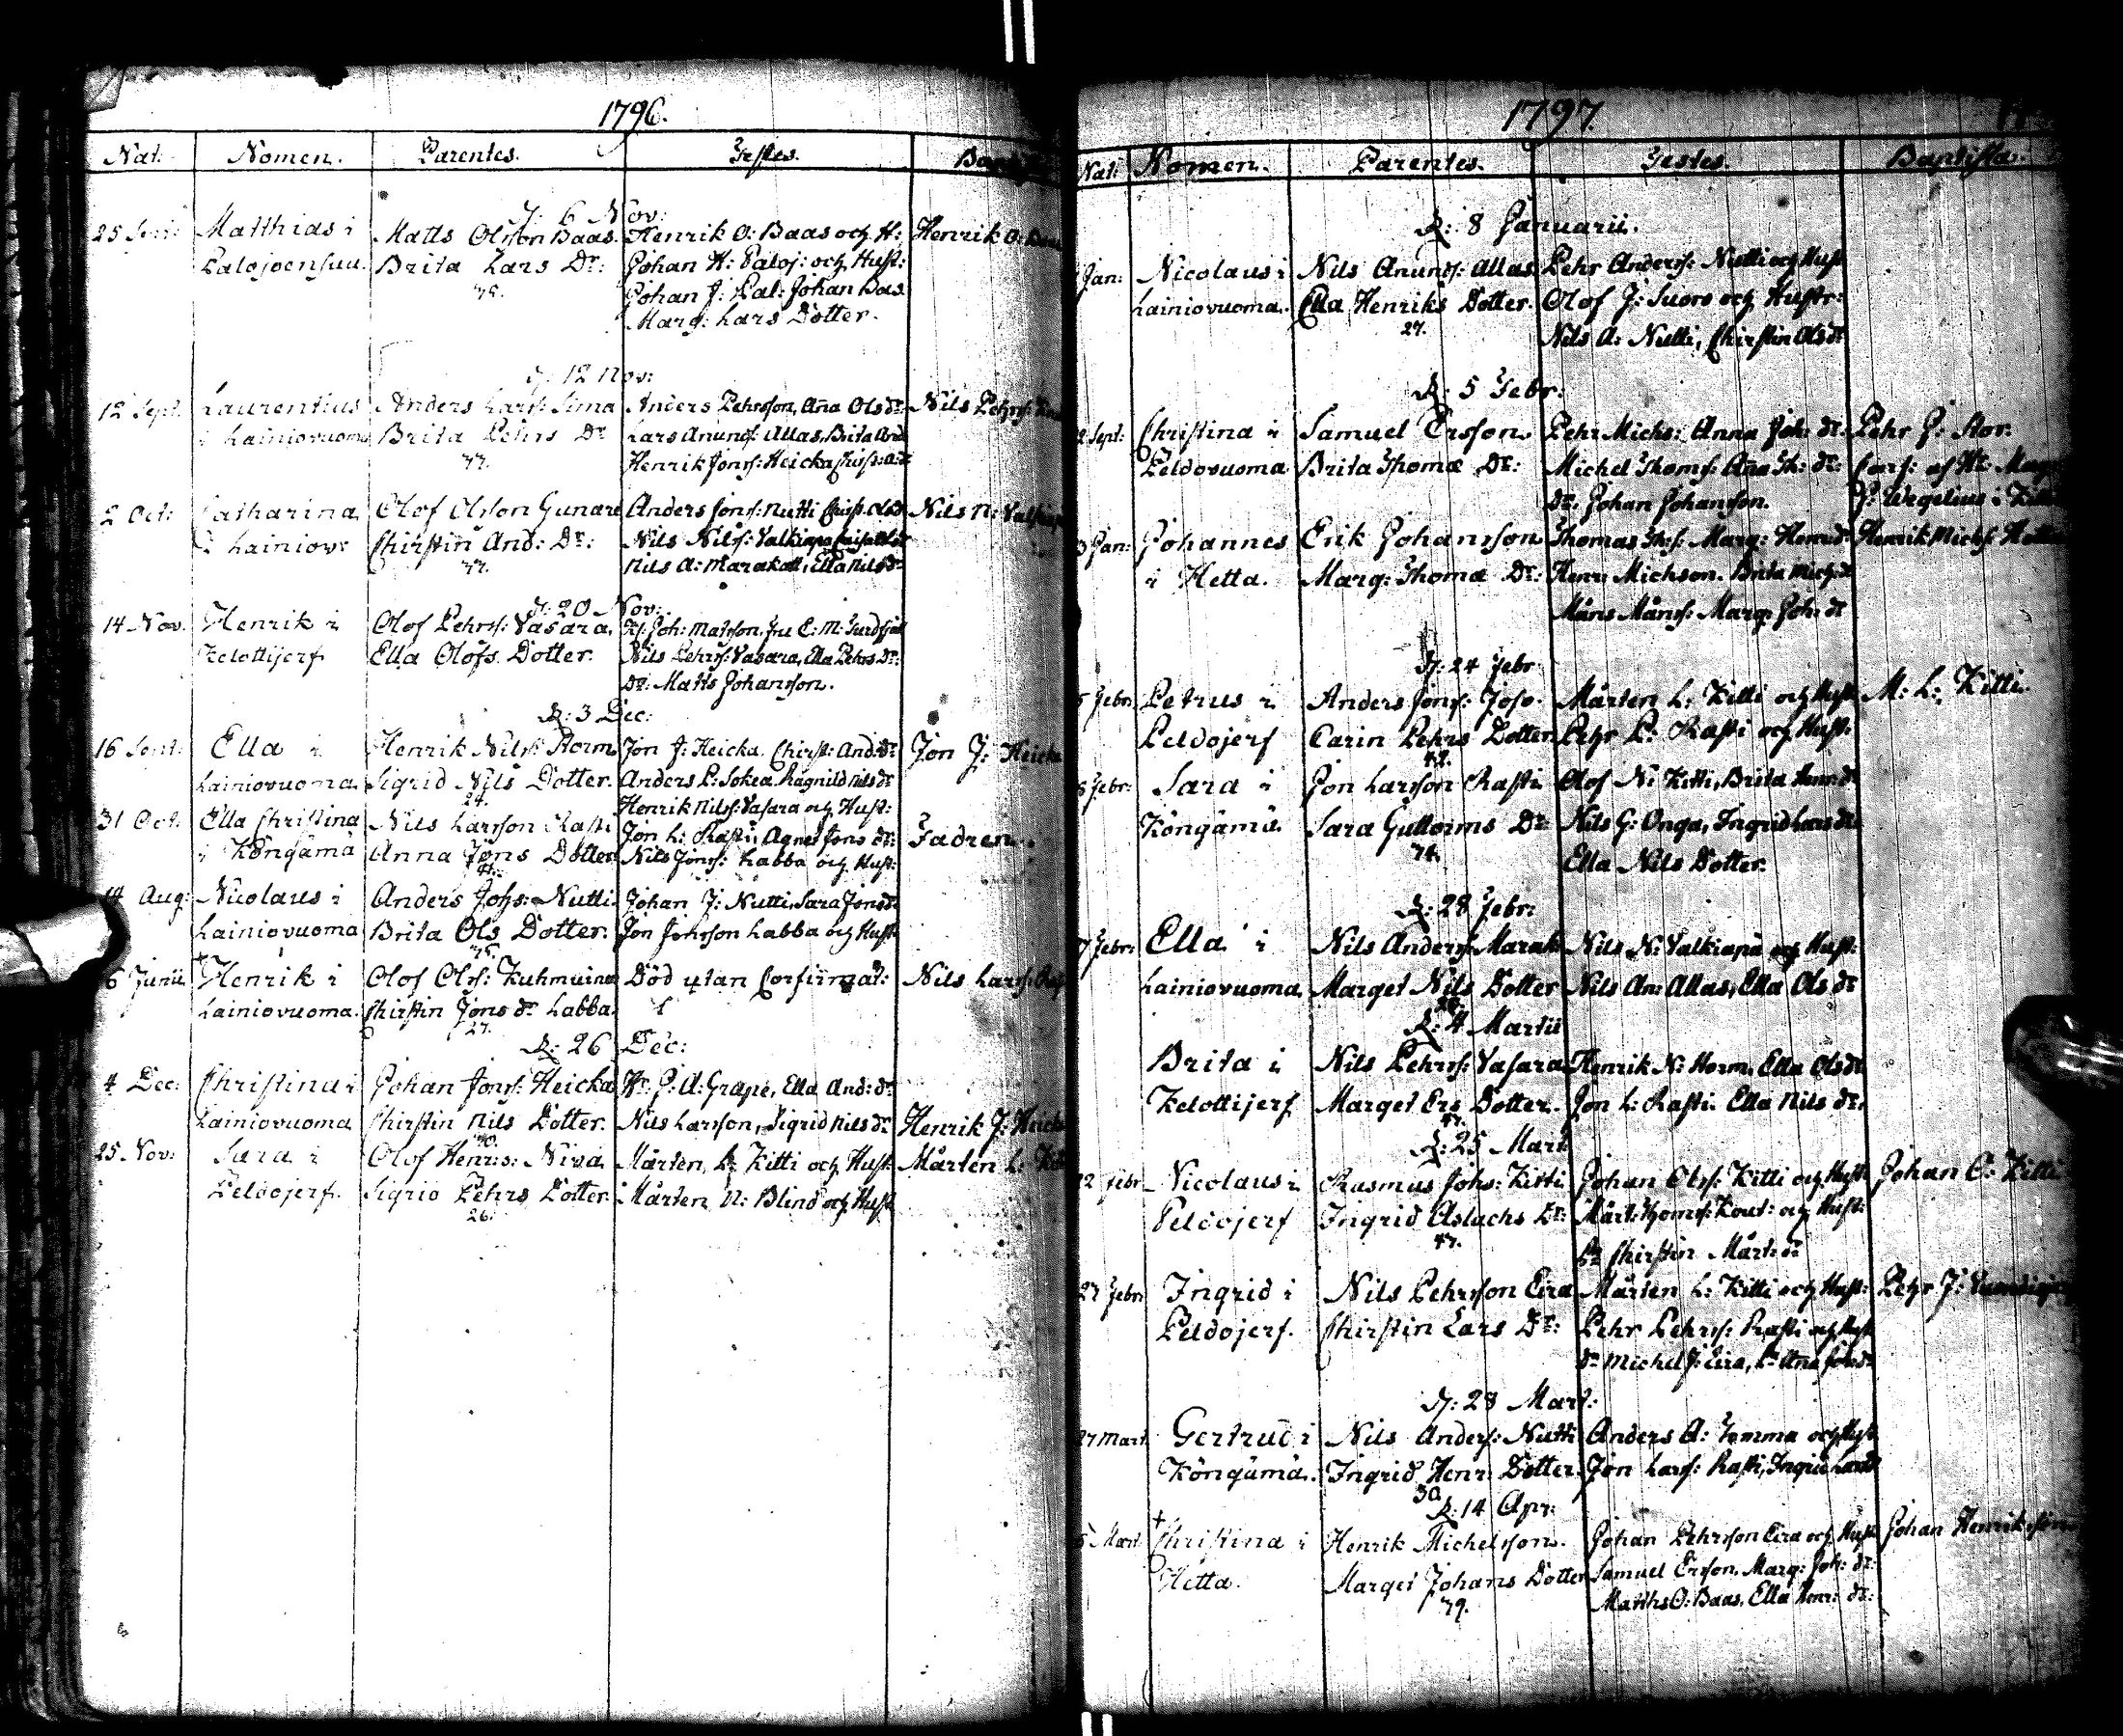 1796.
Nat: Nomen. Parentes. Testes.
D: 6 Nov:
Matthias i Matts Olsson Baas. Henrik O: Baas och H: Henrik O:
Palojoensuu. Brita Lars Dr: Johan H: Paloj: och Hust:
75. Johan J: Pal: Johan Bas
Marg: Lars Dotter.
D. 12 Nov:
12 Sept. Laurentius Anders Lars: Sima Anders Pehrsson, Aña Olsdr Nils Pehrs:
i Lainiovuoma Brita Pehrs Dr Lars Anunds: Allas, Brita And
77. Henrik Jons: Heicka
2 Oct: Catharina Olof Olsson Gunare Anders Jons: Nutti Olsdr Nils N:
i Lainiov: Chirstin And: Dr: Nils Nils: Valkiapa
77. Nils A: Marakatt, Ella Nilsdr
D: 20 Nov:
14 Nov. Henrik i Olof Pehrs: Vasara. Joh: Matsson,
Kelottijerf Ella Olofs Dotter. Nils Pehrs: Vasara, Ella Pehrs Dr:
Dr: Matts Johansson.
D: 3 Dec:
16 Sept: Ella i Henrik Nils: Horm Jon J: Heicka. Chirst: And: dr Jon J: Heicka
Lainiovuoma. Sigrid Nils Dotter. Anders P: Sokea. Ragnild Nils dr
24. Henrik Nils: Vasara och Hust:
31 Oct: Ella Christina Nils Larsson Rasti Jon L: Rasti, Agnes Jons dr: Fadren.
i Köngämä Anna Jons Dotter. Nils Jons: Labba och Hust:
14 Aug: Nicolaus i Anders Johs: Nutti. Johan J: Nutti, Sara Jonsdr
Lainiovuoma Brita Ols Dotter. Jon Jonsson Labba och Hust
75.
6 Junii Henrik i Olof Ols: Kuhmuina Död utan confirmat: Nils Lars:
Lainiovuoma. Chirstin Jons dr Labba.
27.
D: 26 Dec:
4 Dec: Christina i Johan Jons: Heicka Hr J: A: Grape, Ella And: dr
Lainiovuoma Chirstin Nils Dotter. Nils Larsson, Sigrid Nils dr Henrik J: Heicka
40.
25 Nov: Sara i Olof Henr:s: Niva Mårten L: Kitti och Hust Mårten L:
Peldojerf. Sigrid Pehrs Dotter. Mårten N: Blind och Hust
26.
1797.
Nat: Nomen. Parentes. Testes. Baptista:
D: 8 Januarii.
Jan: Nicolaus i Nils Anunds: Allas. Pehr Anders: Nutti och Hust
Lainiovuoma. Ella Henriks Dotter. Olof J: Suoro och Hustr:
27. Nils A: Nutti, Chirstin Olsdr
D: 5 Febr:
Sept: Christina i Samuel Ersson. Pehr Michs: Anna Joh: dr: Pehr J: Stor.
Peldovuoma Brita Thomæ Dr: Michel Thoms: Aña Th: dr: Conf: af Hr:
dr. Johan Johansson. J: Wegelius i
Jan: Johannes Erik Johansson Thomas Ths: Marg: Henr: dr Henrik Michs: Hetta
i Hetta. Marg: Thomæ Dr: Henr: Michson. Brita Mich: dr
Måns Måns: Marg: Joh: dr
D: 24 Febr
Febr: Petrus i Anders Jons: Joso. Mårten L: Kitti och Hust M: L: Kitti.
Peldojerf Carin Pehrs Dotter Pehr P: Rasti och Hust:
42.
Febr: Sara i Jon Larsson Rasti Olof N: Kitti, Brita Henr: dr
Köngämä. Sara Gullorms Dr Nils G: Onga, Ingrid Lars dr
74. Ella Nils Dotter.
D: 28 Febr:
7 Febr: Ella i Nils Anders: Marak Nils N: Valkiapä och Hust:
Lainiovuoma. Marget Nils Dotter Nils An: Allas, Ella Ols dr
D: 4 Martii
Brita i Nils Pehrs: Vasara Henrik N: Horm. Ella Olsdr
Kelottijerf Marget Ers Dotter. Jon L: Rasti. Ella Nils dr.
47.
D: 25 Mart
22 Febr Nicolaus i Rasmus Johs: Kitti Johan Ols: Kitti och Hust Johan O: Kitti
Peldojerf Ingrid Aslachs Dr: Mårt: Thoms: Kout: och Hust:
47. Chirstin Mårt: dr
27 Febr: Ingrid i Nils Pehrsson Eira Mårten L: Kitti och Hust: Pehr J:
Peldojerf. Chirstin Lars Dr: Pehr Pehrs: Rasti och Hust
dr Michel J: Eira,
D: 28 Mart:
27 Mart Gertrud i Nils Anders: Nutti Anders A: Tomma och Hust
Köngämä. Ingrid Henr: Dotter. Jon Lars: Rasti, Ingrid Larsdr
30
D: 14 Apr:
Mart Christina i Henrik Michelsson. Johan Pehrsson Eira och Hust Johan Henriksson
Hetta. Marget Johans Dotter Samuel Ersson. Marg: Joh: dr:
79. Matths O: Baas, Ella Henr: dr: